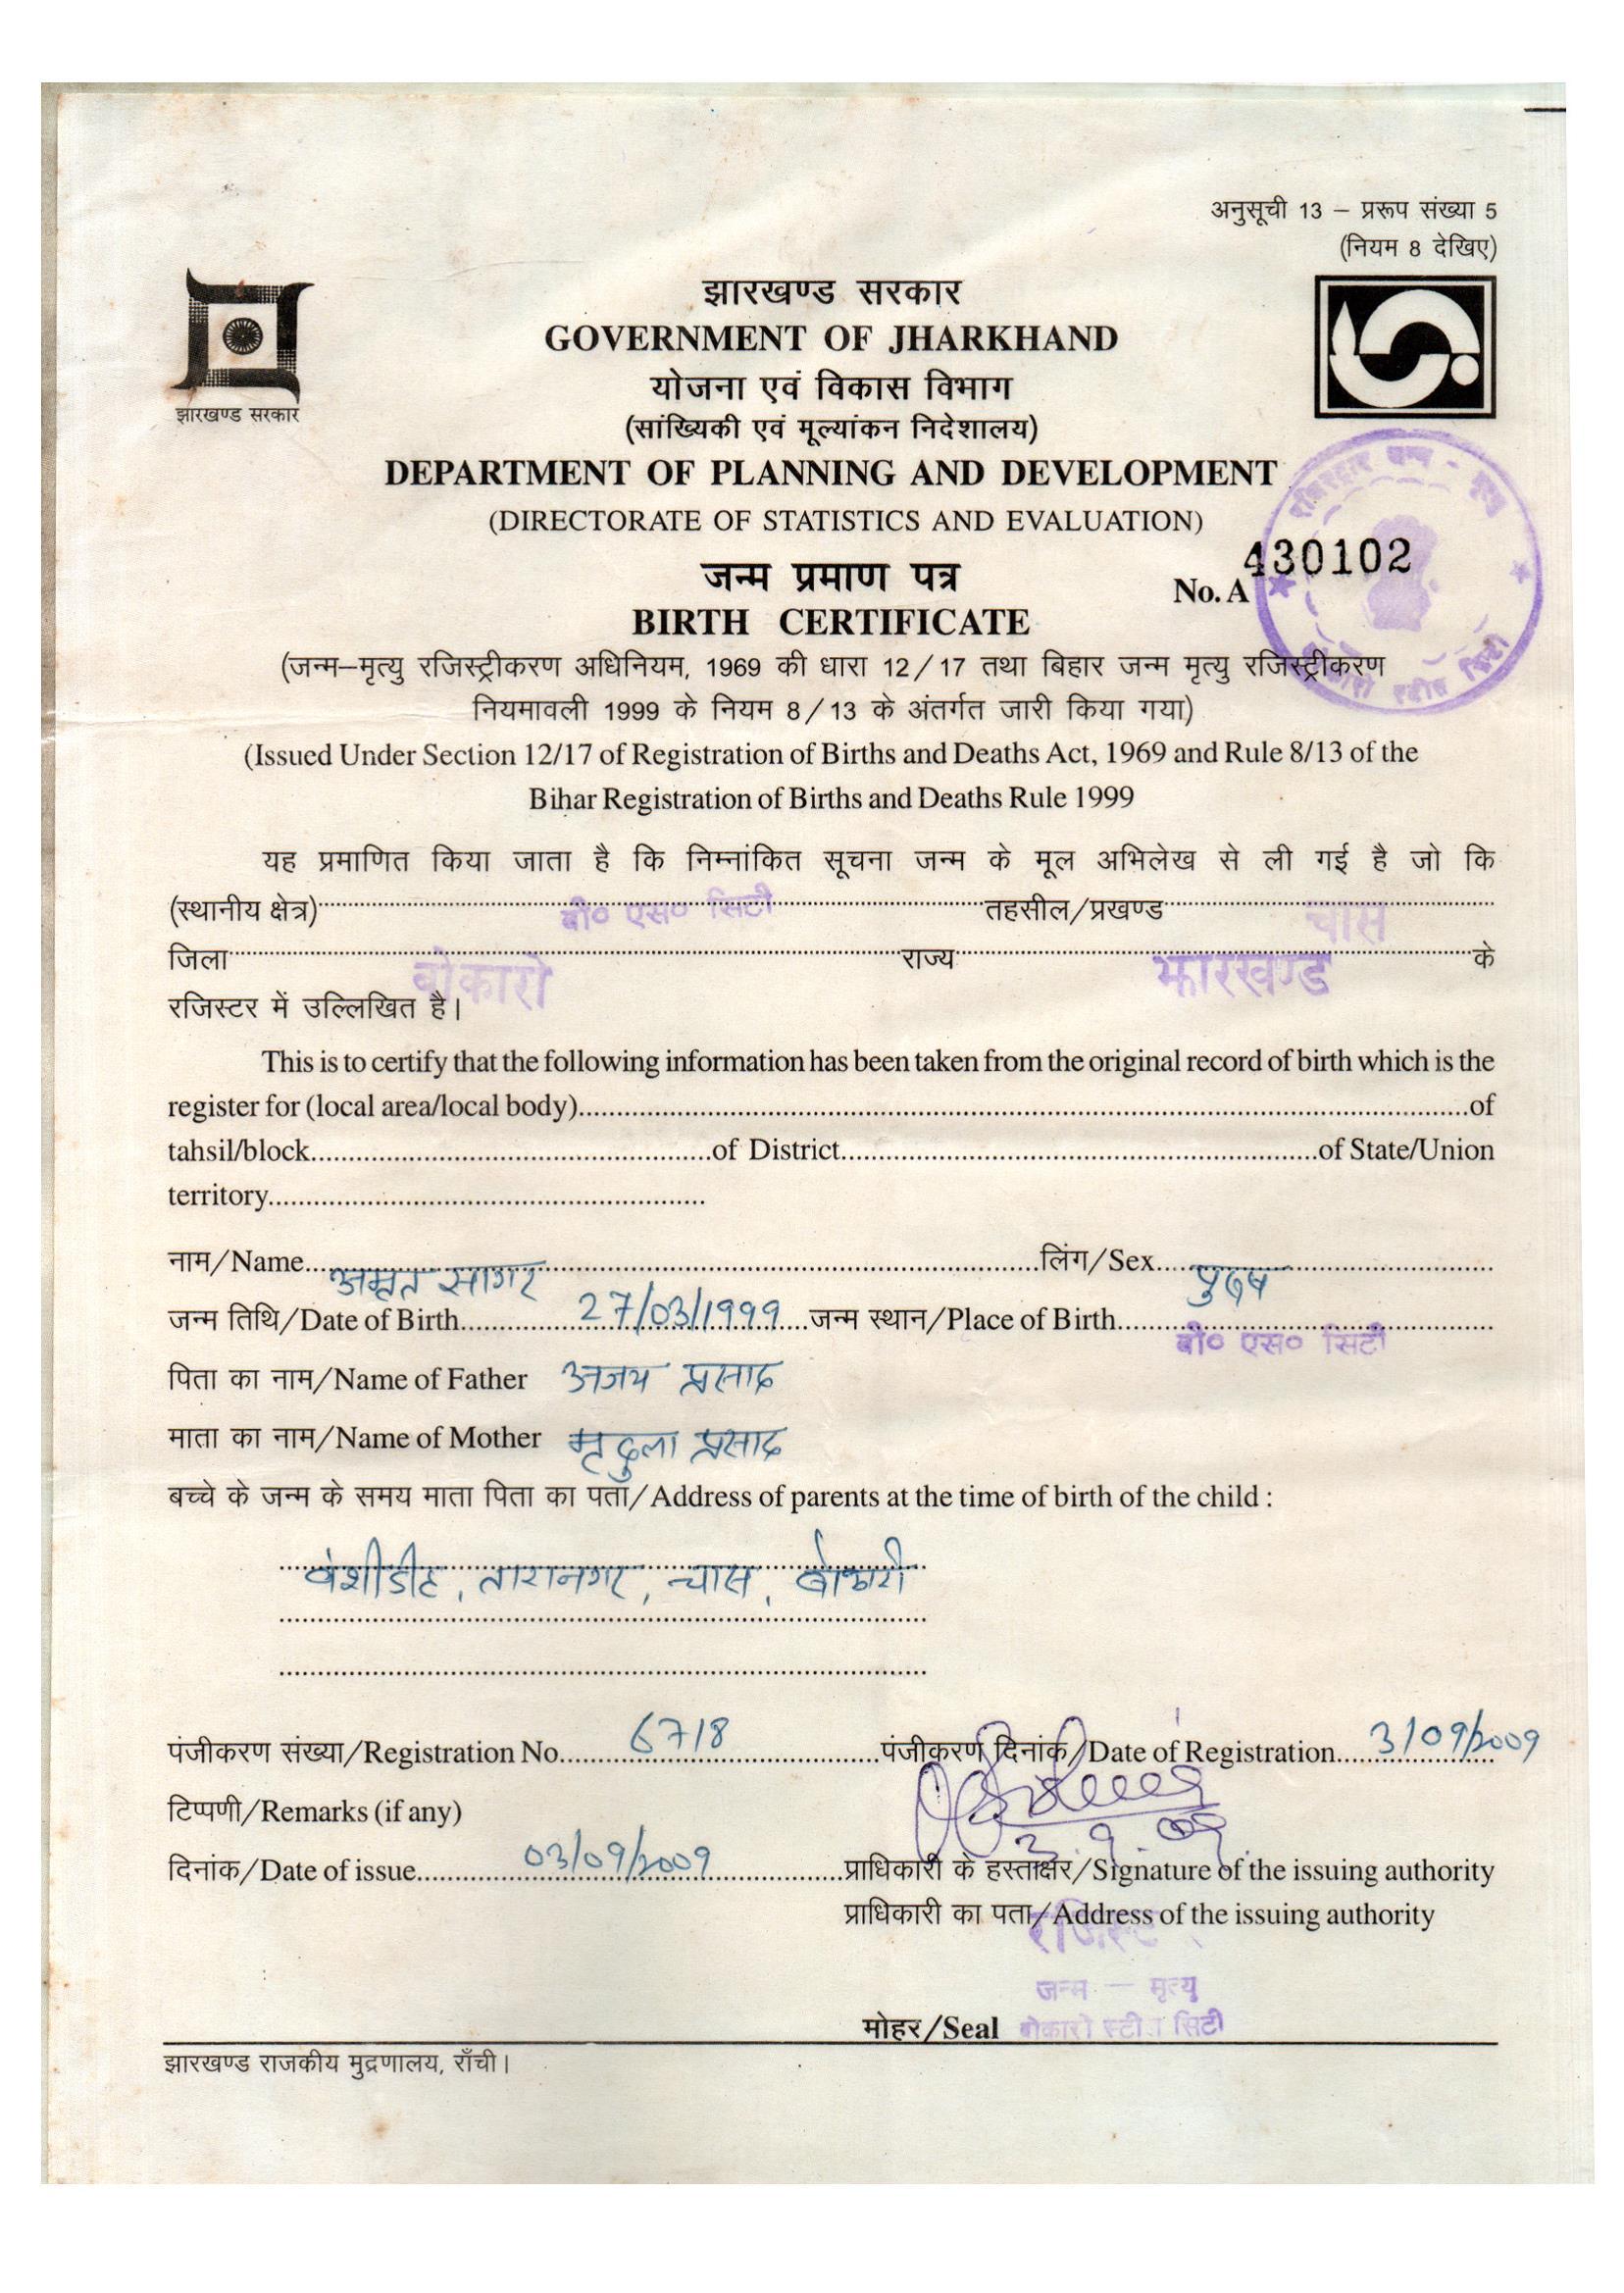 अनुसूची 13 – प्ररूप संख्या 5
(नियम 8 देखिए)
झारखण्ड सरकार
झारखण्ड सरकार
GOVERNMENT OF JHARKHAND
योजना एवं विकास विभाग
(सांख्यिकी एवं मूल्यांकन निदेशालय)
DEPARTMENT OF PLANNING AND DEVELOPMENT
(DIRECTORATE OF STATISTICS AND EVALUATION)
जन्म प्रमाण पत्र
No. A 430102
BIRTH CERTIFICATE
(जन्म–मृत्यु रजिस्ट्रीकरण अधिनियम, 1969 की धारा 12/17 तथा बिहार जन्म मृत्यु रजिस्ट्रीकरण
नियमावली 1999 के नियम 8/13 के अंतर्गत जारी किया गया)
(Issued Under Section 12/17 of Registration of Births and Deaths Act, 1969 and Rule 8/13 of the
Bihar Registration of Births and Deaths Rule 1999
यह प्रमाणित किया जाता है कि निम्नांकित सूचना जन्म के मूल अभिलेख से ली गई है जो कि
(स्थानीय क्षेत्र) बी० एस० सिटी तहसील/प्रखण्ड चास
जिला बोकारो राज्य झारखण्ड के
रजिस्टर में उल्लिखित है।
This is to certify that the following information has been taken from the original record of birth which is the
register for (local area/local body) of
tahsil/block of District of State/Union
territory
नाम/Name अमृत सागर लिंग/Sex पुरुष
जन्म तिथि/Date of Birth 27/03/1999 जन्म स्थान/Place of Birth बी० एस० सिटी
पिता का नाम/Name of Father अजय प्रसाद
माता का नाम/Name of Mother मृदुला प्रसाद
बच्चे के जन्म के समय माता पिता का पता/Address of parents at the time of birth of the child :
वंशीडीह, तारानगर, चास, बोकारो
पंजीकरण संख्या/Registration No. 6718 पंजीकरण दिनांक/Date of Registration 3/09/2009
टिप्पणी/Remarks (if any)
3.9.09
दिनांक/Date of issue 03/09/2009 प्राधिकारी के हस्ताक्षर/Signature of the issuing authority
प्राधिकारी का पता/Address of the issuing authority
जन्म – मृत्यु
मोहर/Seal बोकारो स्टील सिटी
झारखण्ड राजकीय मुद्रणालय, राँची।